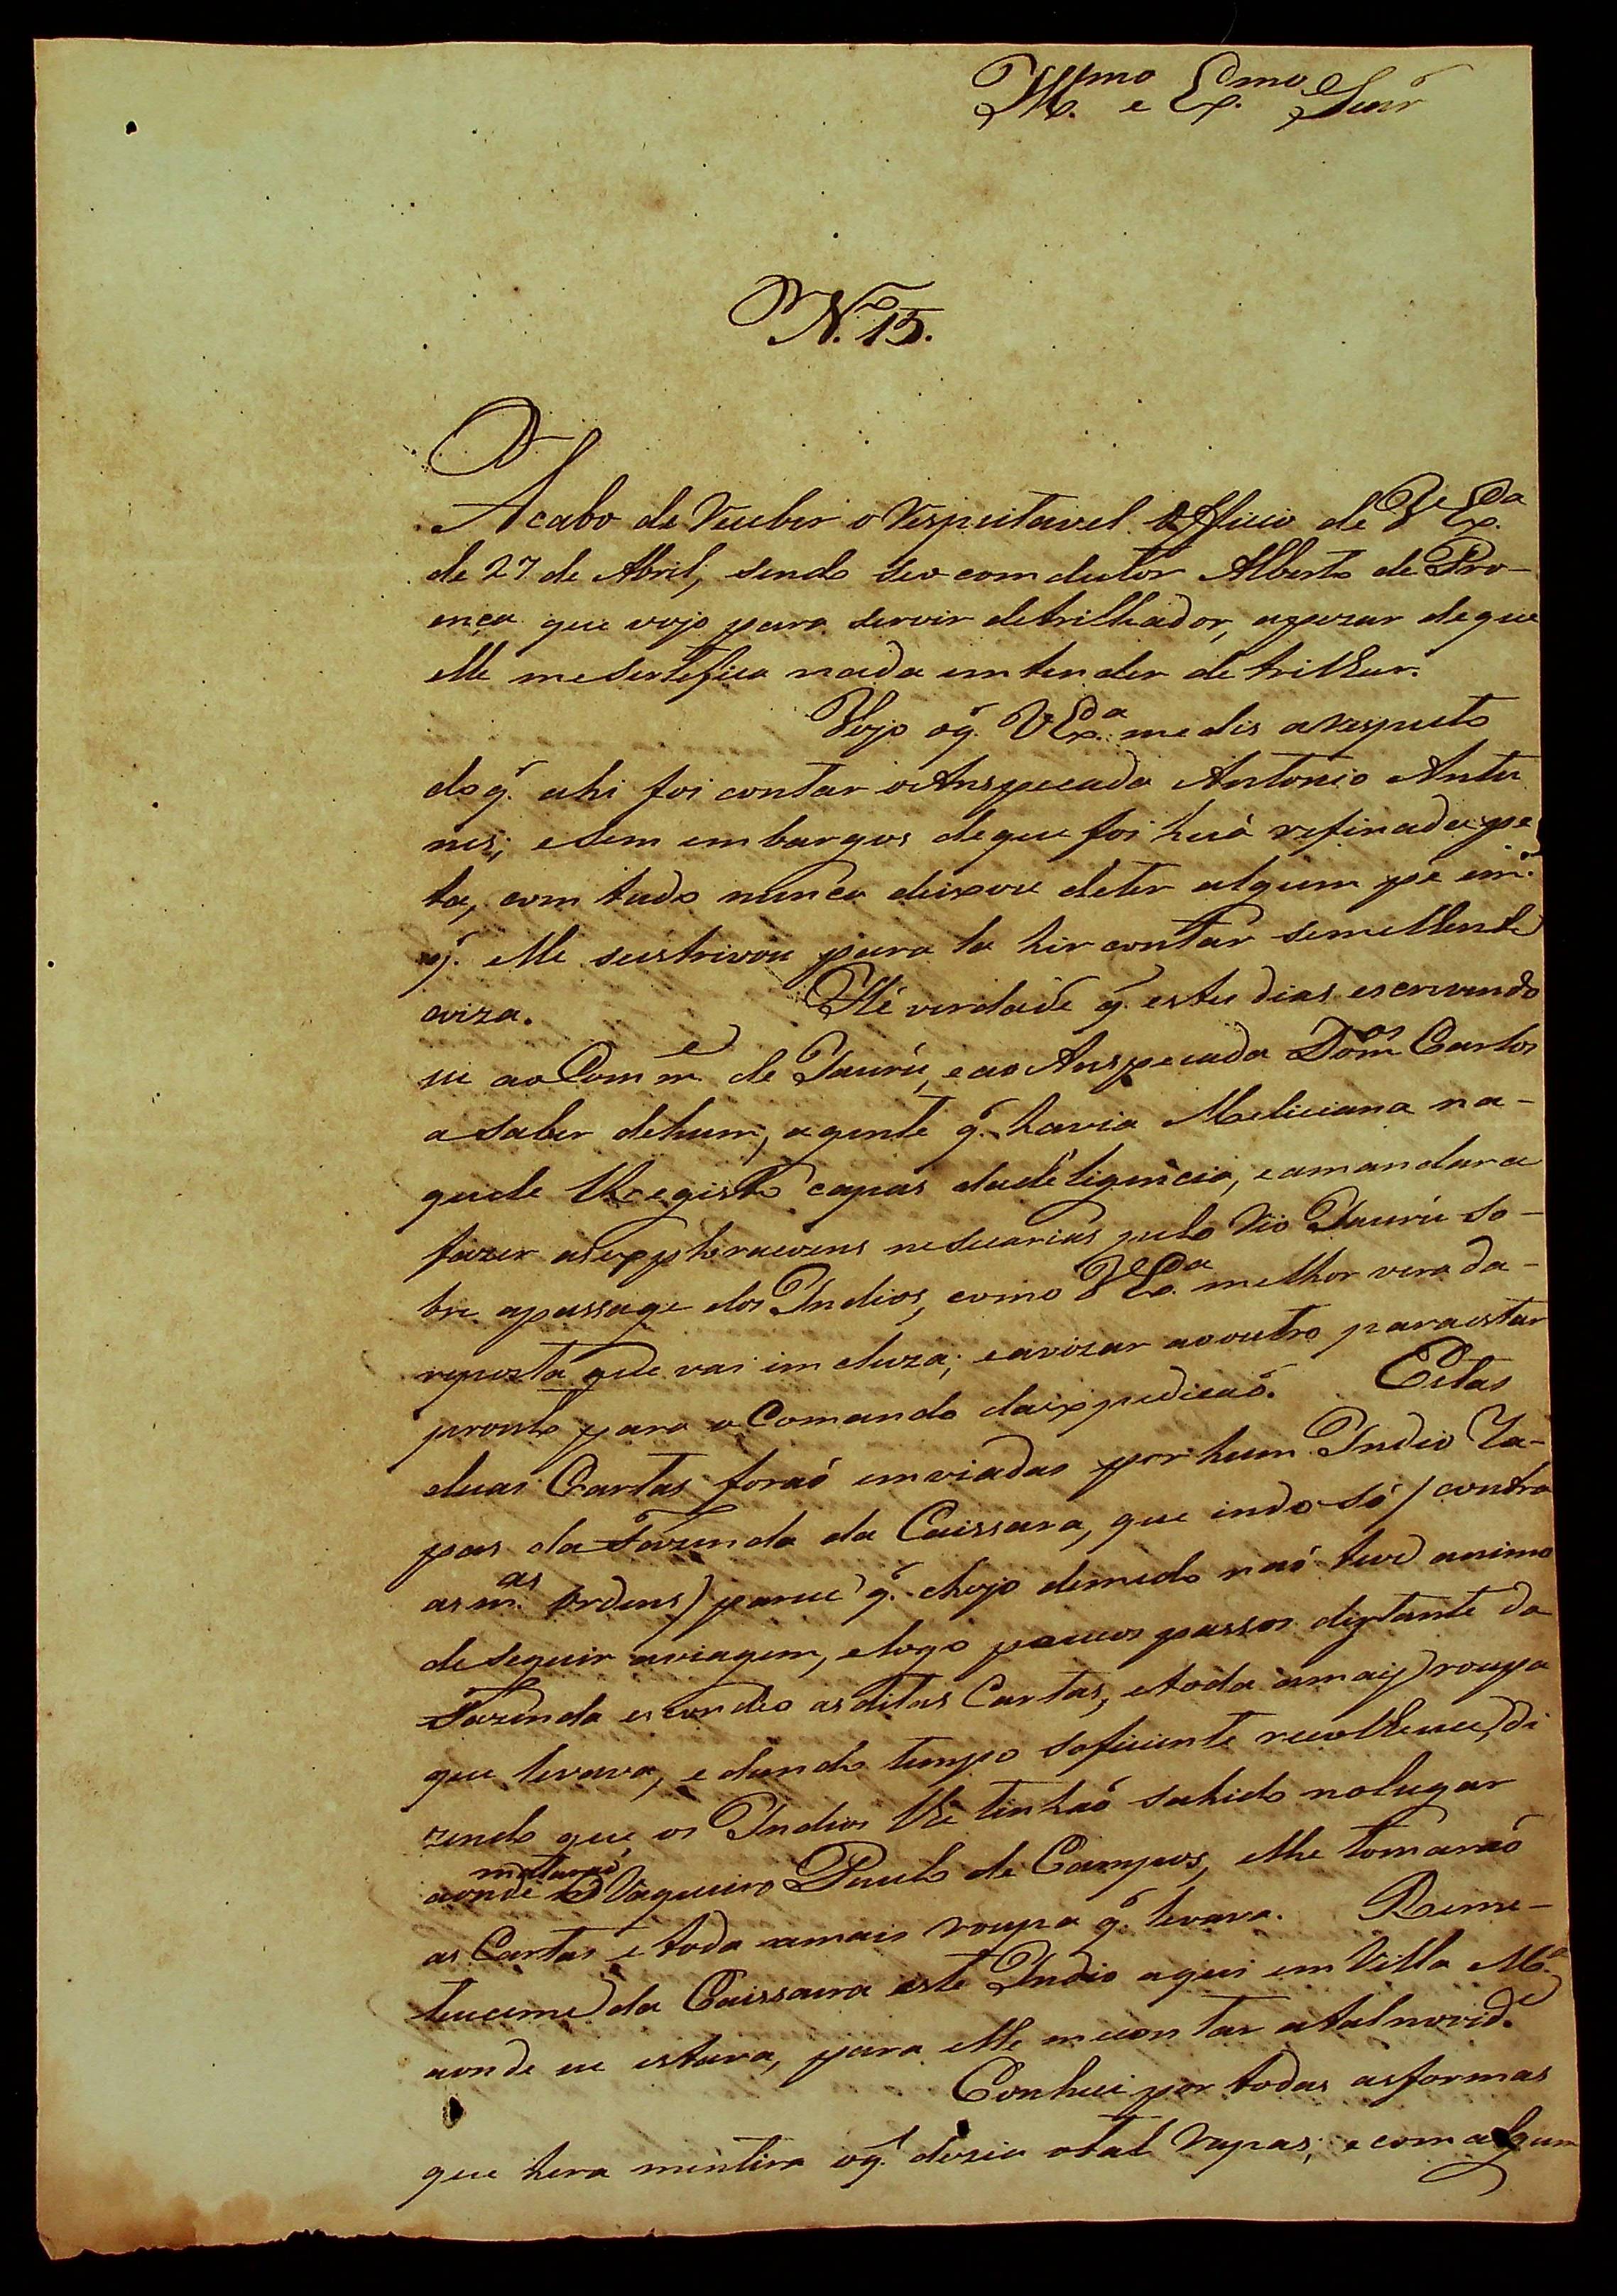 Ill.mo e Ex.mo Senr
N.º 15.
Acabo de Receber o Respeitavel Officio de V Ex.ca
de 27 de Abril, sendo seo comdutor Alberto de Pro-
ença que vejo para servir detrilhador, apezar deque
elle mesertefica nada emtender de trilhar.
Vejo oq̃. V Ex.ca me dis arespeito
doq̃. ahi foi contar o Anspecada Antonio Antu
nes; esem embargos deque foi huã refinada pe
ta, com tudo nunca deixou deter algum pé em
q̃. elle sestrivou para la hir contar semelhente
coiza. Hé verdade q̃. estes dias escrevendo
eu ao Comm.e de Jaurú, e ao Anspecada Dom.os Carlos
a saber dehum, agente q̃. havia Meliciana na-
quele Rregisto capas dadeligencia, eamandara
fazer asexpploracoens nesecarias pelo Rio Jaurú so-
bre apassage dos Indios, como V Ex.ca melhor vera da-
reposta que vai imcluza; eavizar aooutro paraestar
pronto para o Comando daixpedicaõ. Estas
duas Cartas foraõ emviadas por hum Indio Ra-
pas da Fazenda da Caissara, que indo só / contra
as m.as ordens) parece q̃. chejo demedo naõ teve animo
deseguir aviagem, elogo poucos passos distante da
Fazenda escondeo asditas Cartas, etoda amais roupa
que levava, e dando tempo soficiente recolheuce, di
zendo que os Indios lhe tinhaõ sahido nolugar
aonde mataraõ o Vaqueiro Paulo de Campos, elhe tomaraõ
as Cartas etoda amais roupa q̃. levava. Reme-
teuceme da Caissara este Indio aqui em Villa M.a
aonde eu estava, para elle mecontar atal novid.e
Conheci por todas asformas
que hera mentira oq̃. dezia otal Rapas; e com algum